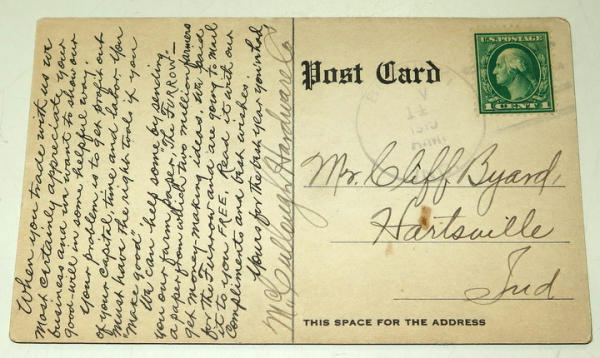 When you trade with us we
most certainly appreciate your
business and we want to show our
good-will in some helpful way.
Your problem is to get profit out
of your capital, time and labor. You
must have the right tools if you
"make good"
We can help some by sending
you our farm paper, "The FURROW"—
a paper from which two million farmers
get money-making ideas. We paid
for the Furrow and are going to mail
it to you FREE. Read it with our
Compliments and best wishes.
Yours for the best year you've had,
McCullough Hardware Co
Post Card
U.S. POSTAGE
1 CENT 1
Mr. Cliff Byard,
Hartsville
Ind
THIS SPACE FOR THE ADDRESS